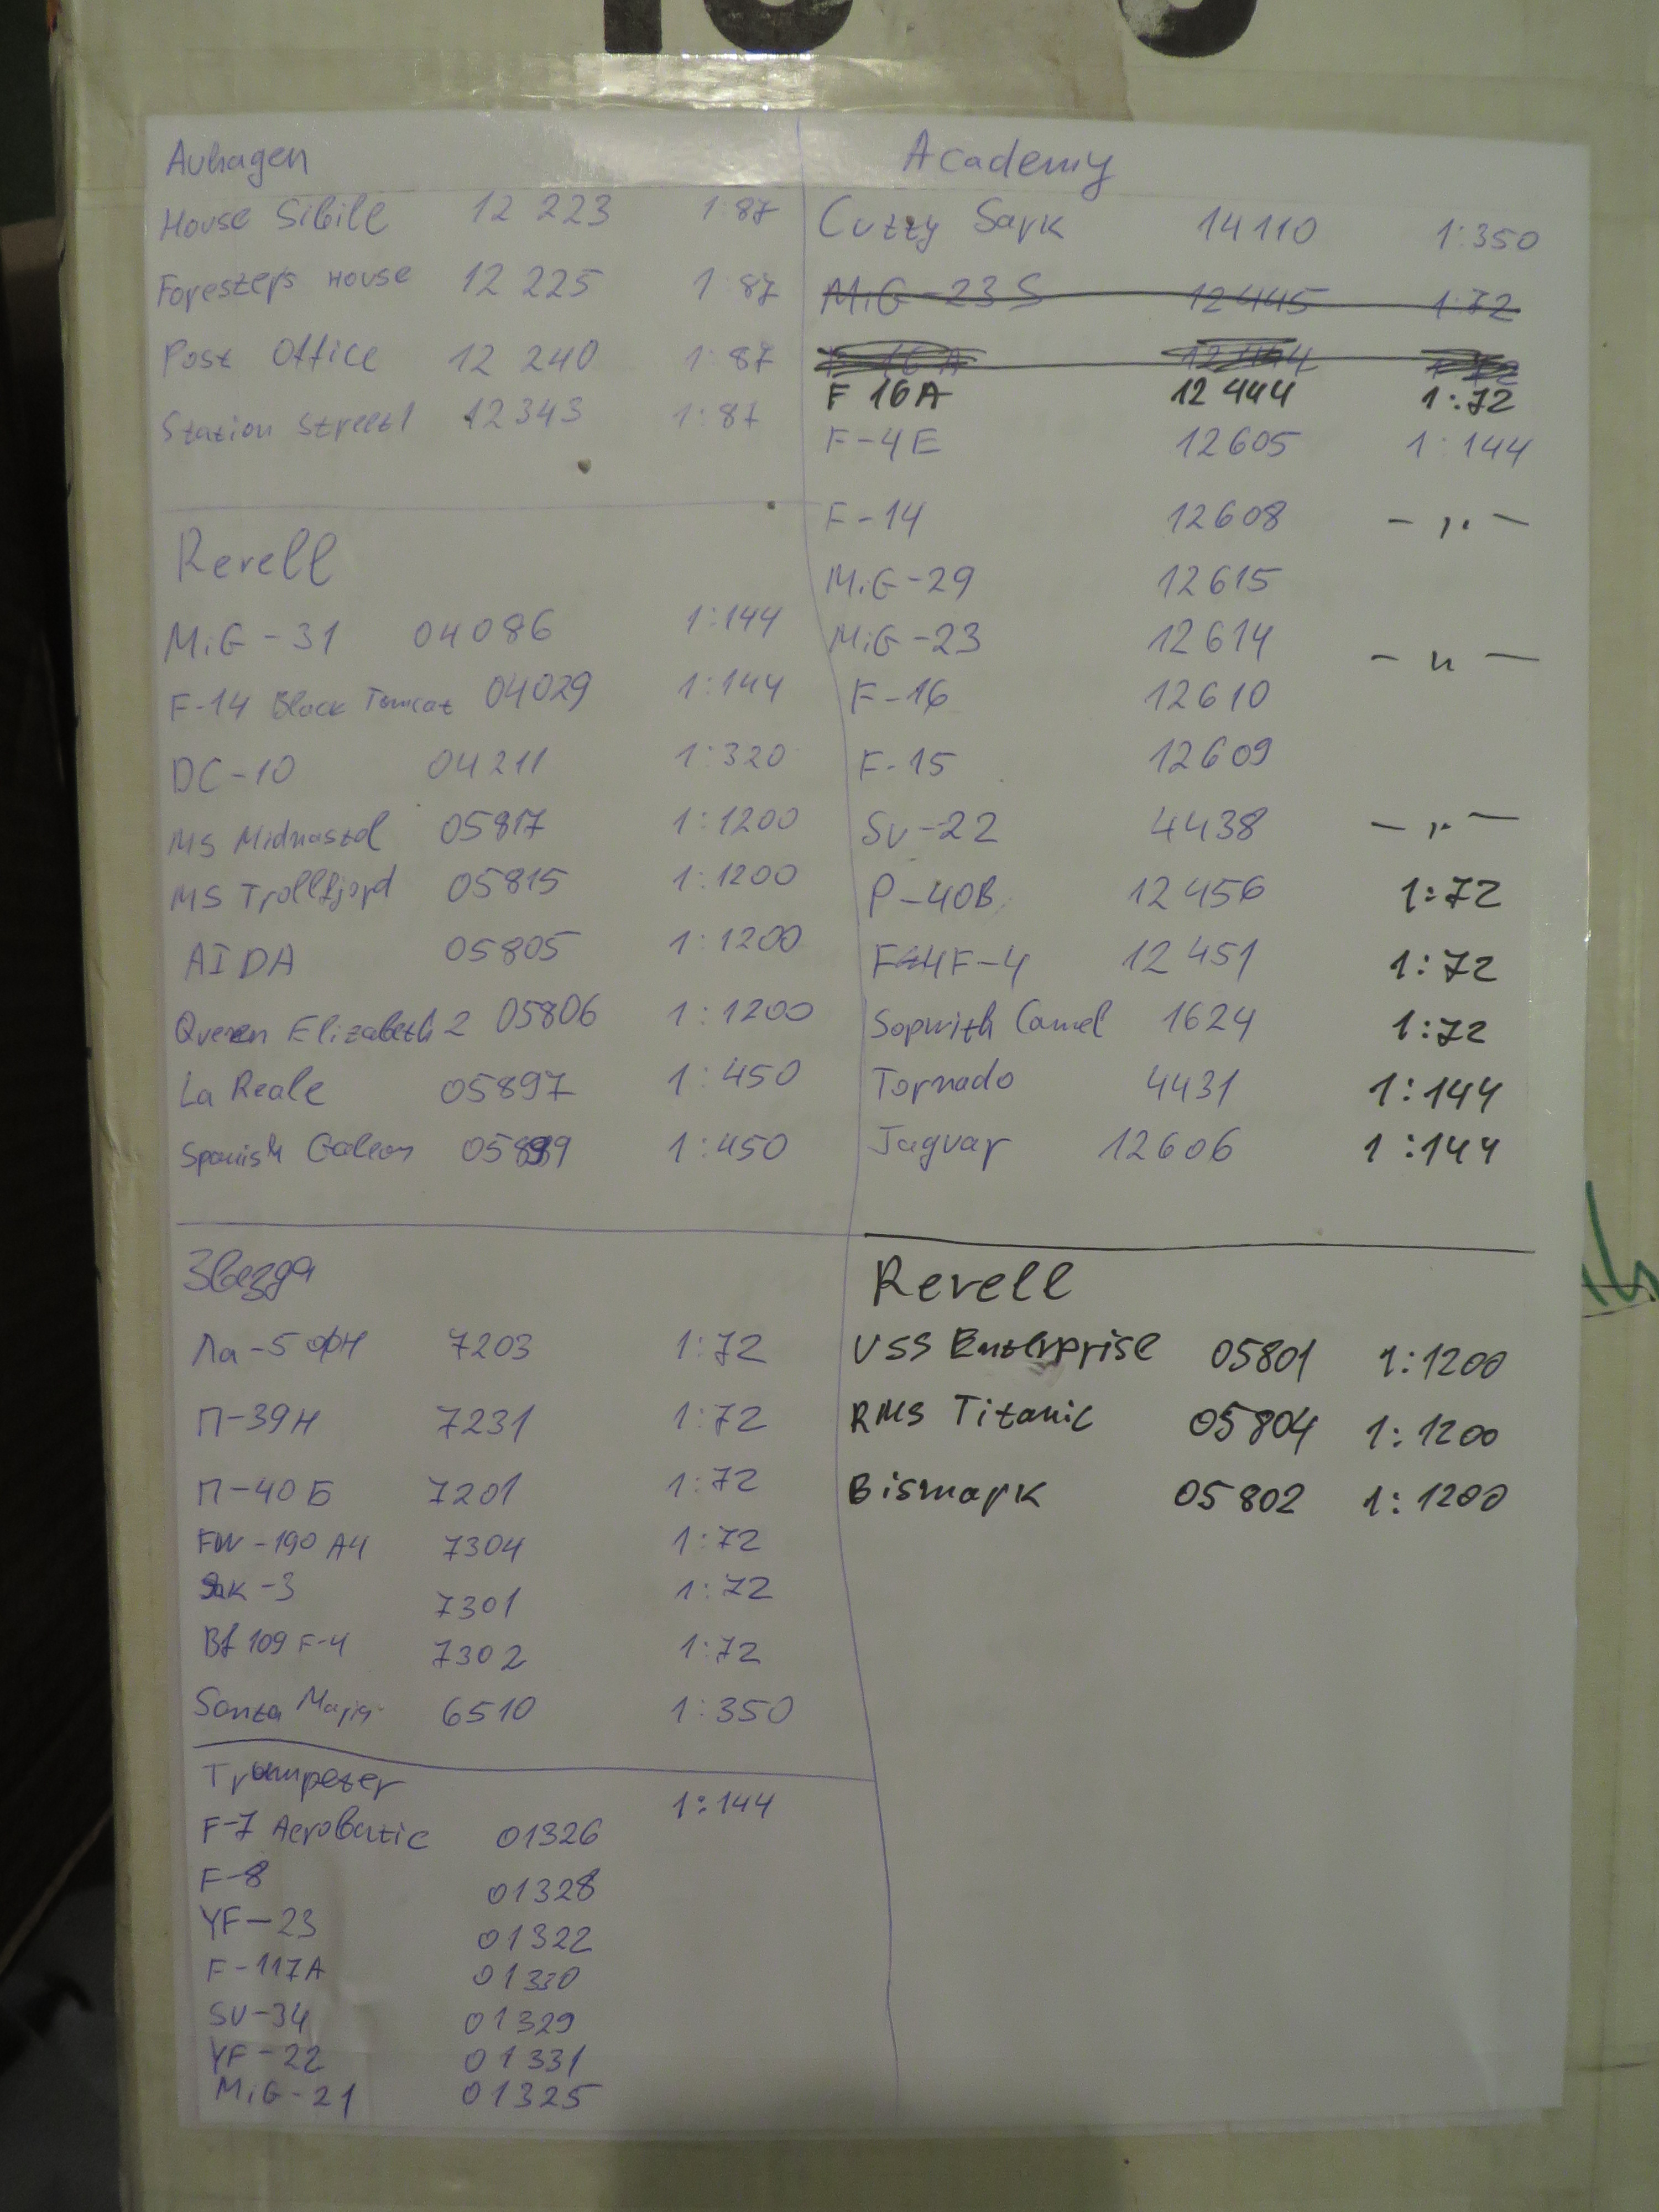 Auhagen
House Sibille 12 223 1:87
Foresters House 12 225 1:87
Post Office 12 240 1:87
Station street 1 12343 1:87
Revell
MiG-31 04086 1:144
F-14 Black Tomcat 04029 1:144
DC-10 04211 1:320
MS Midnastol 05817 1:1200
MS Trollfjord 05815 1:1200
AIDA 05805 1:1200
Queen Elizabeth 2 05806 1:1200
La Reale 05897 1:450
Spanish Galeon 05899 1:450
Звезда
Ла-5 ФН 7203 1:72
П-39Н 7231 1:72
П-40Б 7201 1:72
FW-190 A4 7304 1:72
Як-3 7301 1:72
Bf 109 F-4 7302 1:72
Santa Maria 6510 1:350
Trumpeter
1:144
F-7 Aerobatic 01326
F-8 01328
YF-23 01322
F-117A 01330
SU-34 01329
YF-22 01331
MiG-21 01325
Academy
Cutty Sark 14110 1:350
MiG-23 S 12445 1:72
F 16A 12444 1:72
F-4E 12605 1:144
F-14 12608 — ,, —
MiG-29 12615
MiG-23 12614 — " —
F-16 12610
F-15 12609
SU-22 4438 — ,, —
P-40B 12456 1:72
F4F-4 12451 1:72
Sopwith Camel 1624 1:72
Tornado 4431 1:144
Jaguar 12606 1:144
Revell
USS Enterprise 05801 1:1200
RMS Titanic 05804 1:1200
Bismark 05802 1:1200